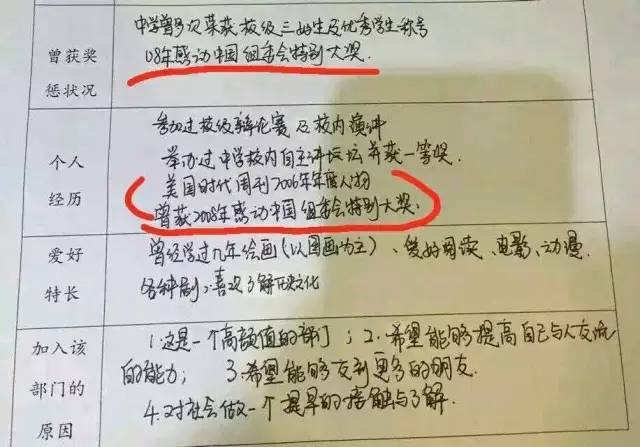 曾获奖
惩状况
中学曾多次荣获校级三好生及优秀学生称号
08年感动中国组委会特别大奖.
个人
经历
参加过校级辩论赛及校内演讲
举办过中学校内自主讲坛并获一等奖.
美国时代周刊2006年年度人物
曾获2008年感动中国组委会特别大奖.
爱好
特长
曾经学过几年绘画(以国画为主)、爱好阅读、电影、动漫
各种剧;喜欢了解历史文化
加入该
部门的
原因
1.这是一个高颜值的部门;2.希望能够提高自己与人交流
的能力; 3.希望能够交到更多的朋友.
4.对社会做一个提早的接触与了解.